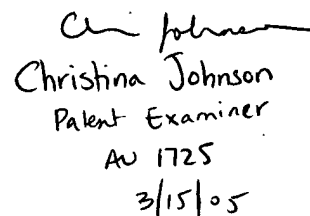 Chi Johnson
Christina Johnson
Patent Examiner
AU 1725
3/15/05